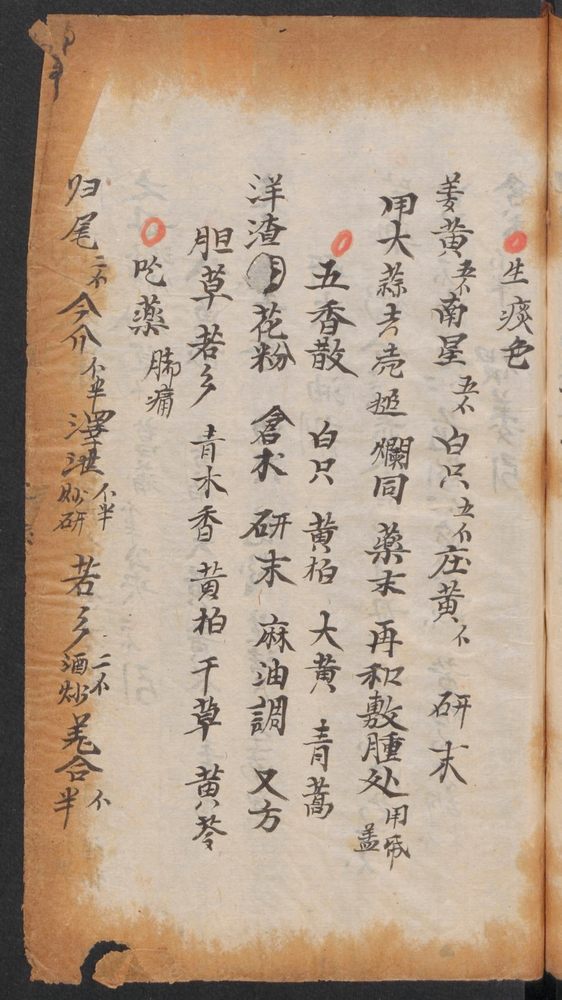 生痰色
姜黄五不南星五不白只五不庄黄不 研末
用大蒜去壳搥爛同藥末再和敷腫处用纸盖
五香散 白只 黄柏 大黄 青蒿
洋渣 花粉 倉术 研末 麻油調 又方
胆草 若乡 青木香 黄柏 干草 黄芩
吃藥 肺痛
归尾二不 今介不半 澤蘭不半炒研 若乡二不酒炒 羗合不半